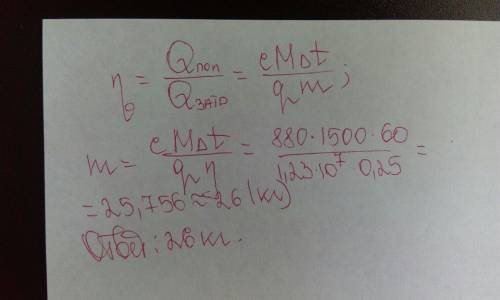 η = Qпол / Qзатр = cMΔt / qm ;
m = cMΔt / qη = 880·1500·60 / 1,23·10⁷ 0,25 =
= 25,756 ≈ 26 (кг)
Ответ: 26 кг.